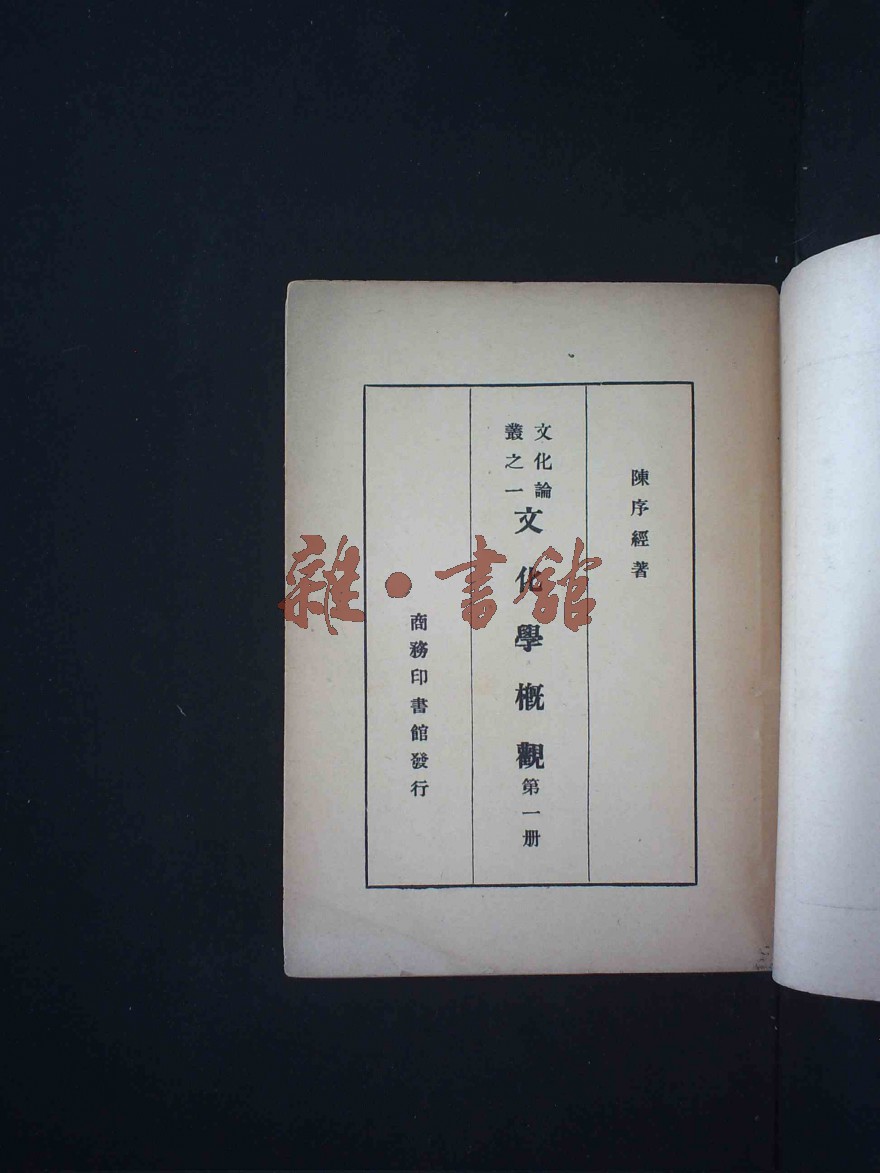 陳序經著
文化論
叢之一
文化學概觀第一册
商務印書館發行
雜·書館